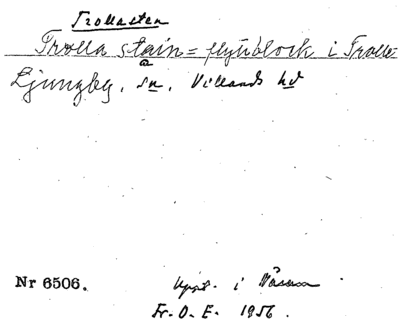 Trollasten
Trolla stain = flyttblock i Trolle
a
Ljungby, sn, Villands hd
Nr 6506. Uppt. i Näsum
Fr. O. E. 1956.